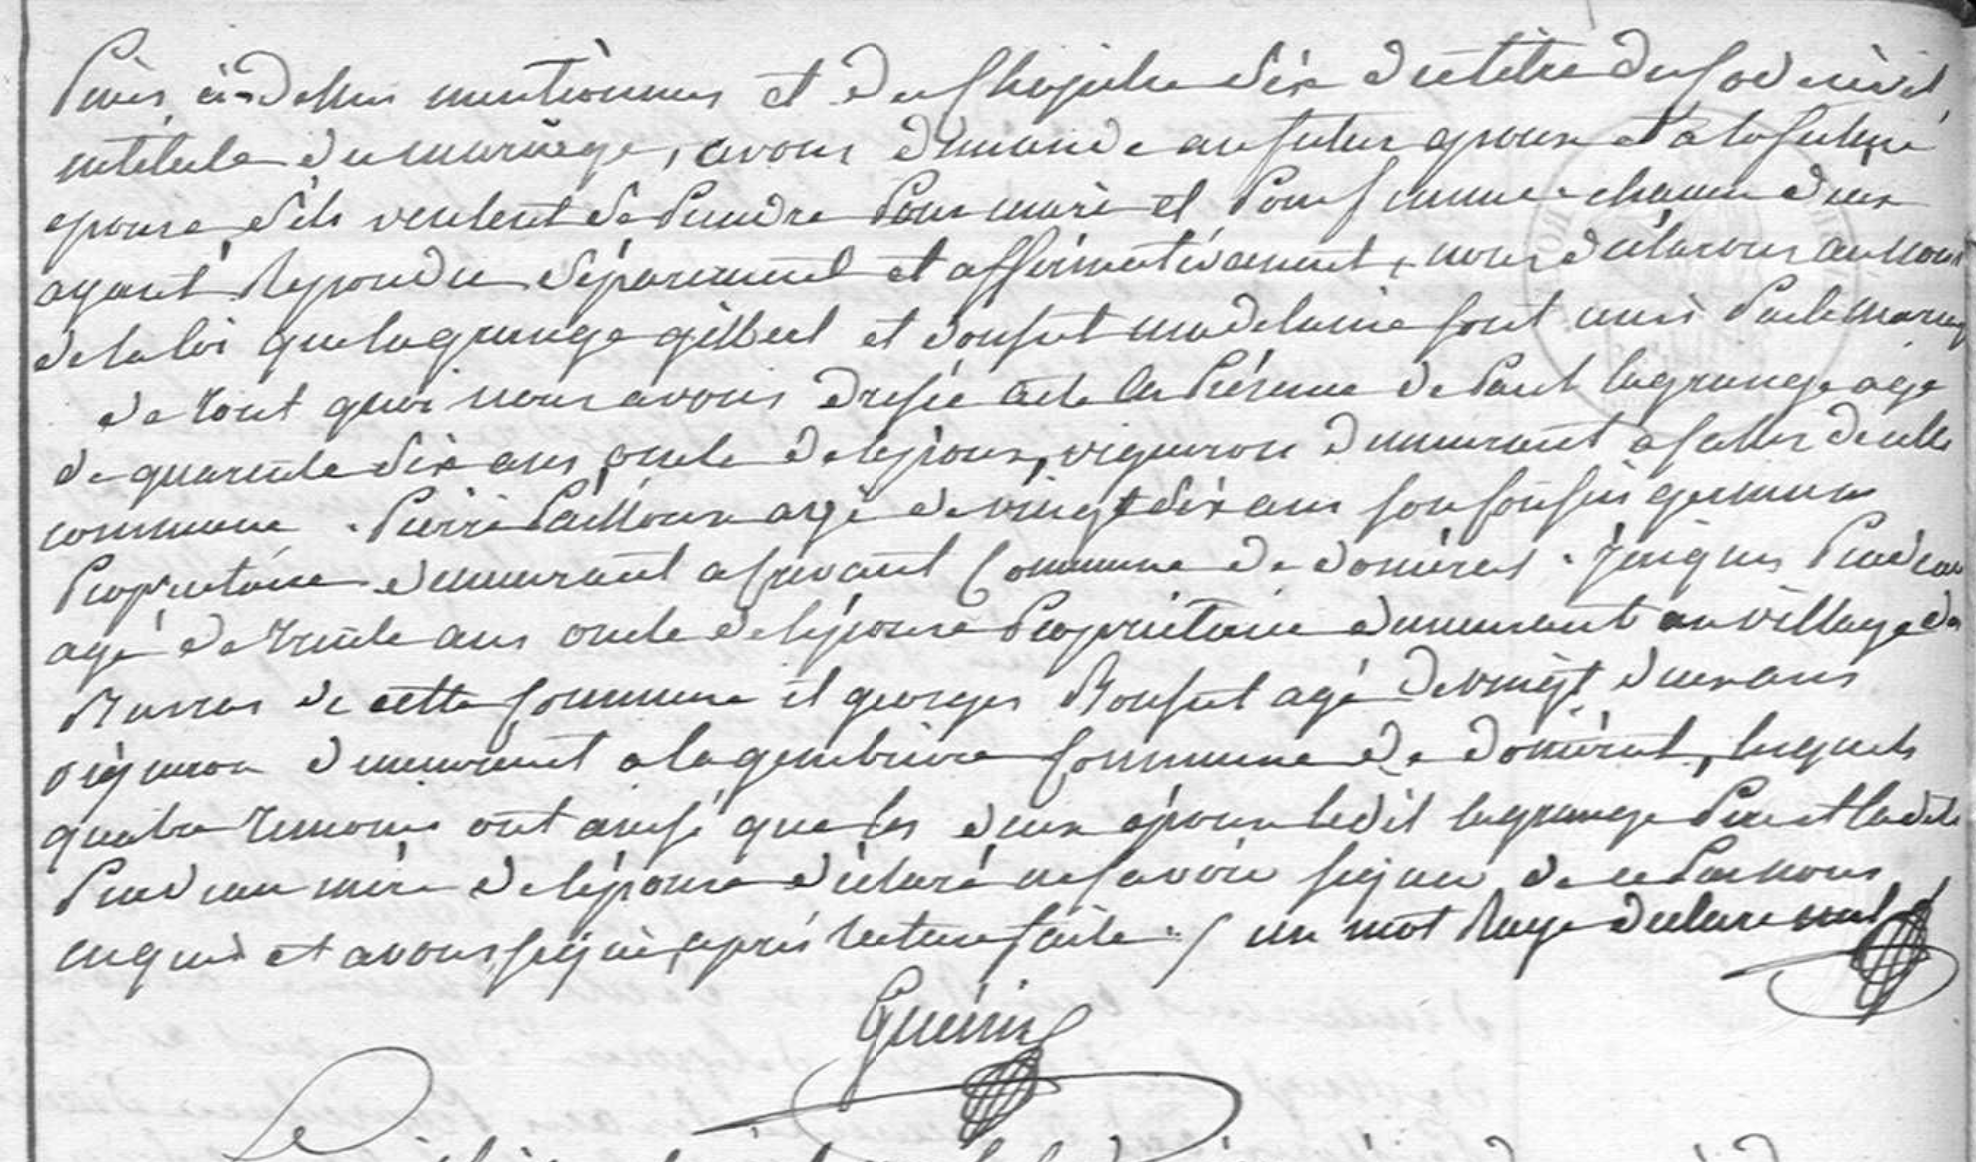 Pièces ci-dessus mentionnés et du Chapitre six du titre du Code civil
intitulé du mariage, avons demandé au futur epoux et a la future
epouse s'ils veulent se Prendre Pour mari et Pour femme. chacun d'eux
ayant Repondu séparement et affirmativement, nous déclarons au nom
de la loi que lagrange gilbert et ronfut madelaine sont unis Par le mariage
de tout quoi nous avons dressé acte en Présence de Paul lagrange agé
de quarente six ans, oncle de lepoux, vigneron demeurant a de cette
commune. Pierre Pailloux agé de vingt six ans son Cousin germain
Propriétaire demeurant a Commune de domérat. Jacques
agé de trente ans oncle de lépouse Propriétaire demeurant au village de
de cette Commune et georges Ronfut agé de vingt deux ans
vigneron demeurant a la genebrière Commune de domérat, lesquels
quatre temoins ont ainsi que les deux époux ledit lagrange Père et ladite
mère de lépouse déclaré ne savoir signer de ce Par nous
enquis et avons signé, après lecture faite ./. un mot Rayé déclaré nul
Guérin
Le